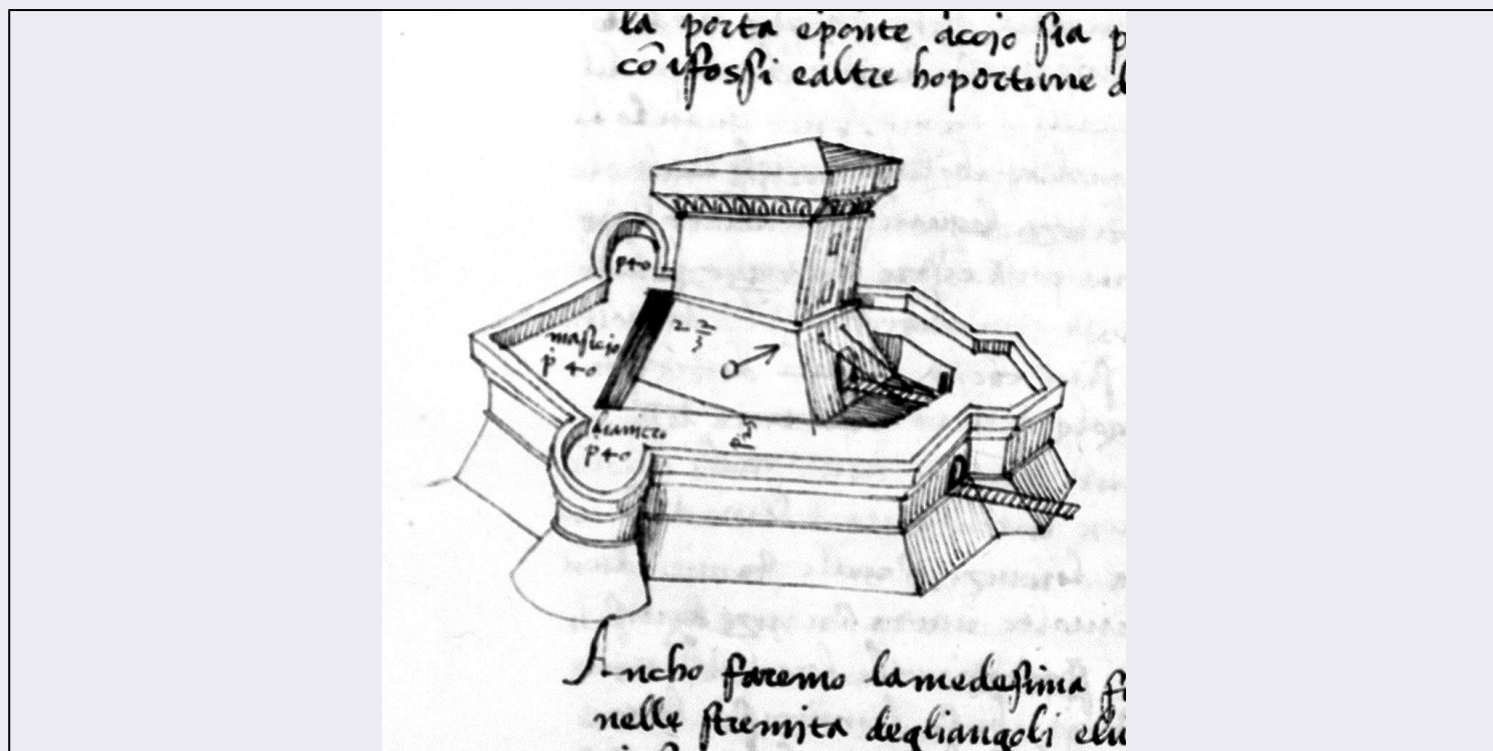 la porta eponte accio sia p
cō ifossi ealtre hoportune d
p 40
masicio
p 40
2 2/3
diamitro
p 40
Ancho faremo lamedesima f
nelle stremita degliangoli elu